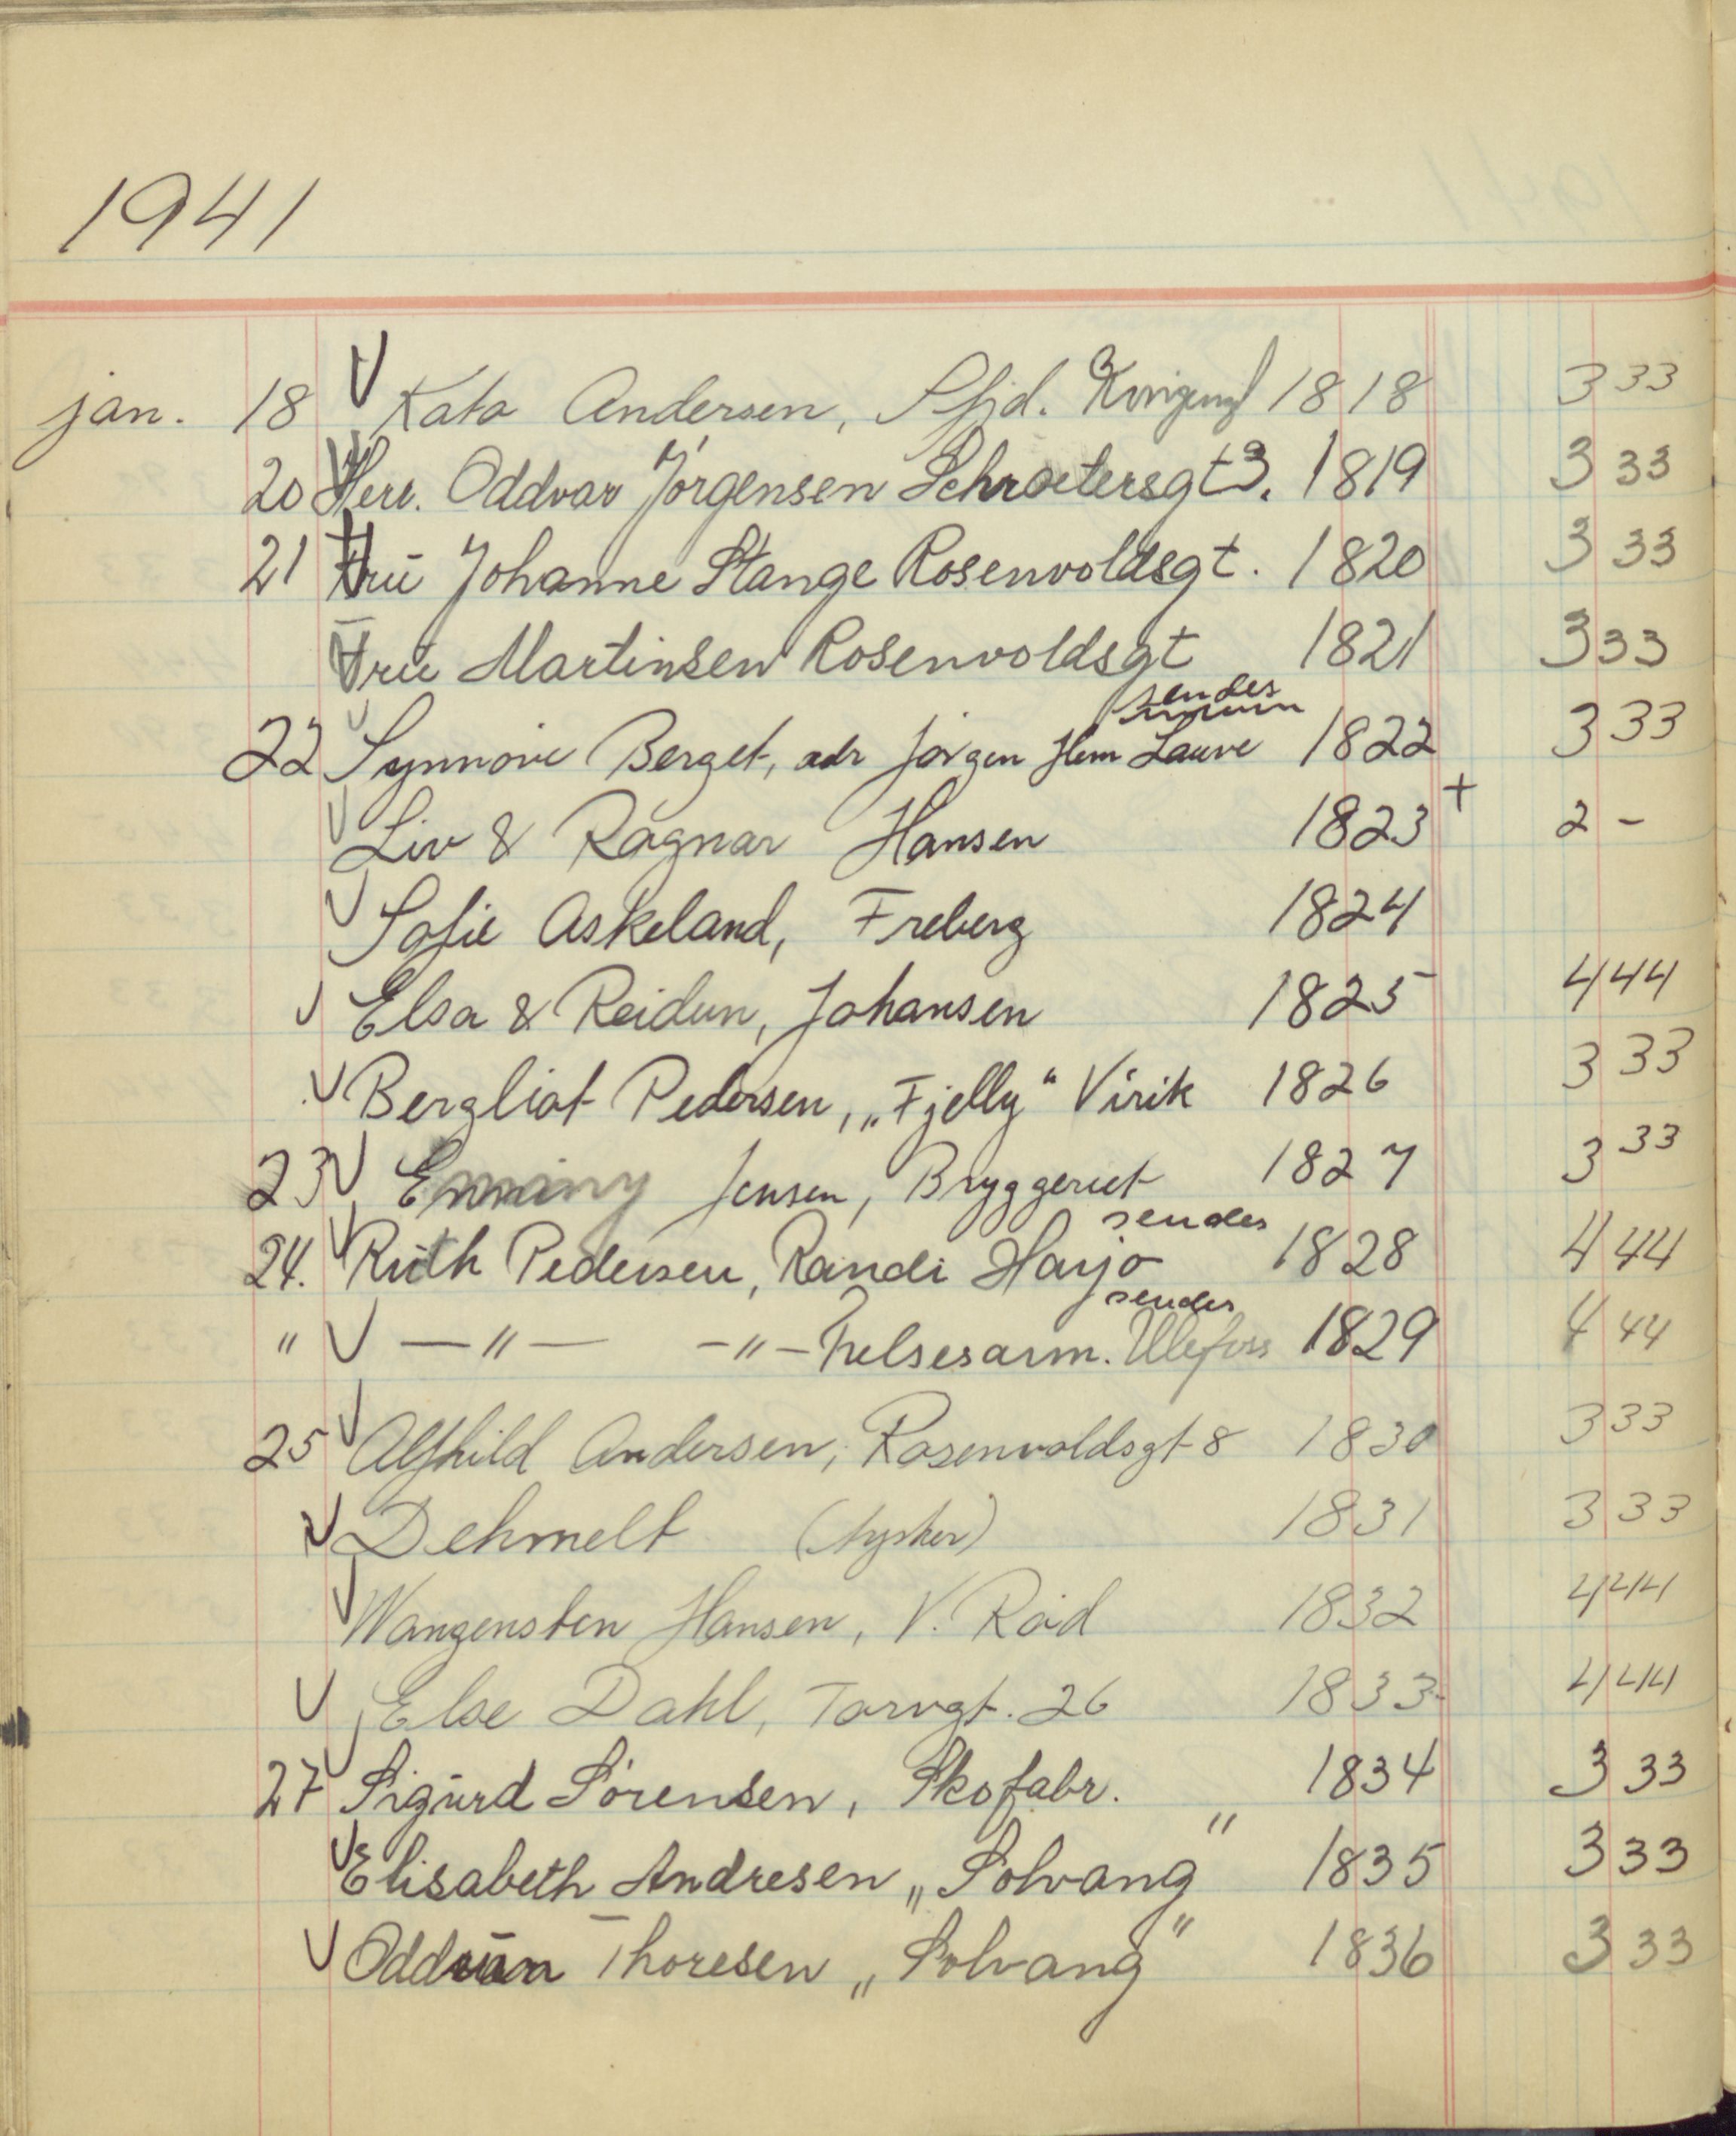 1941
jan. 18 V Kato Andersen, Sfjd. 1818 3 33
20 V Herr. Oddvar Jörgensen Schroetersgt 3. 1819 3 33
21 V Frū Johanne Stange Rosenvoldsgt. 1820 3 33
V Frū Martinsen Rosenvoldsgt 1821 3 33
sendes
22 V Synnöve Berget, adr Jörgen Hem Lauve 1822 3 33
V Liv & Ragnar Hansen 1823 + 2 -
V Sofie Askeland, Freberg 1824
V Elsa & Reidun, Johansen 1825 4 44
V Bergliot Pedersen, „Fjelly“ Virik 1826 3 33
23 V Emminy Jensen, Bryggeriet 1827 3 33
sendes
24. V Rūth Pedersen, Randi Hasjo 1828 4 44
sendes
" V — " — - " - Frelsesarm. Ulefoss 1829 4 44
25 V Alfhild Andersen, Rosenvoldsgt 8 1830 3 33
V Dehmelt (tysker) 1831 3 33
V Wangensten Hansen, V. Röd 1832 4 44
V Else Dahl, Torvgt. 26 1833 4 44
27 V Sigūrd Sörensen, Skofabr. 1834 3 33
V Elisabeth Andresen „Solvang" 1835 3 33
V Oddrūn Thoresen „Solvang" 1836 3 33